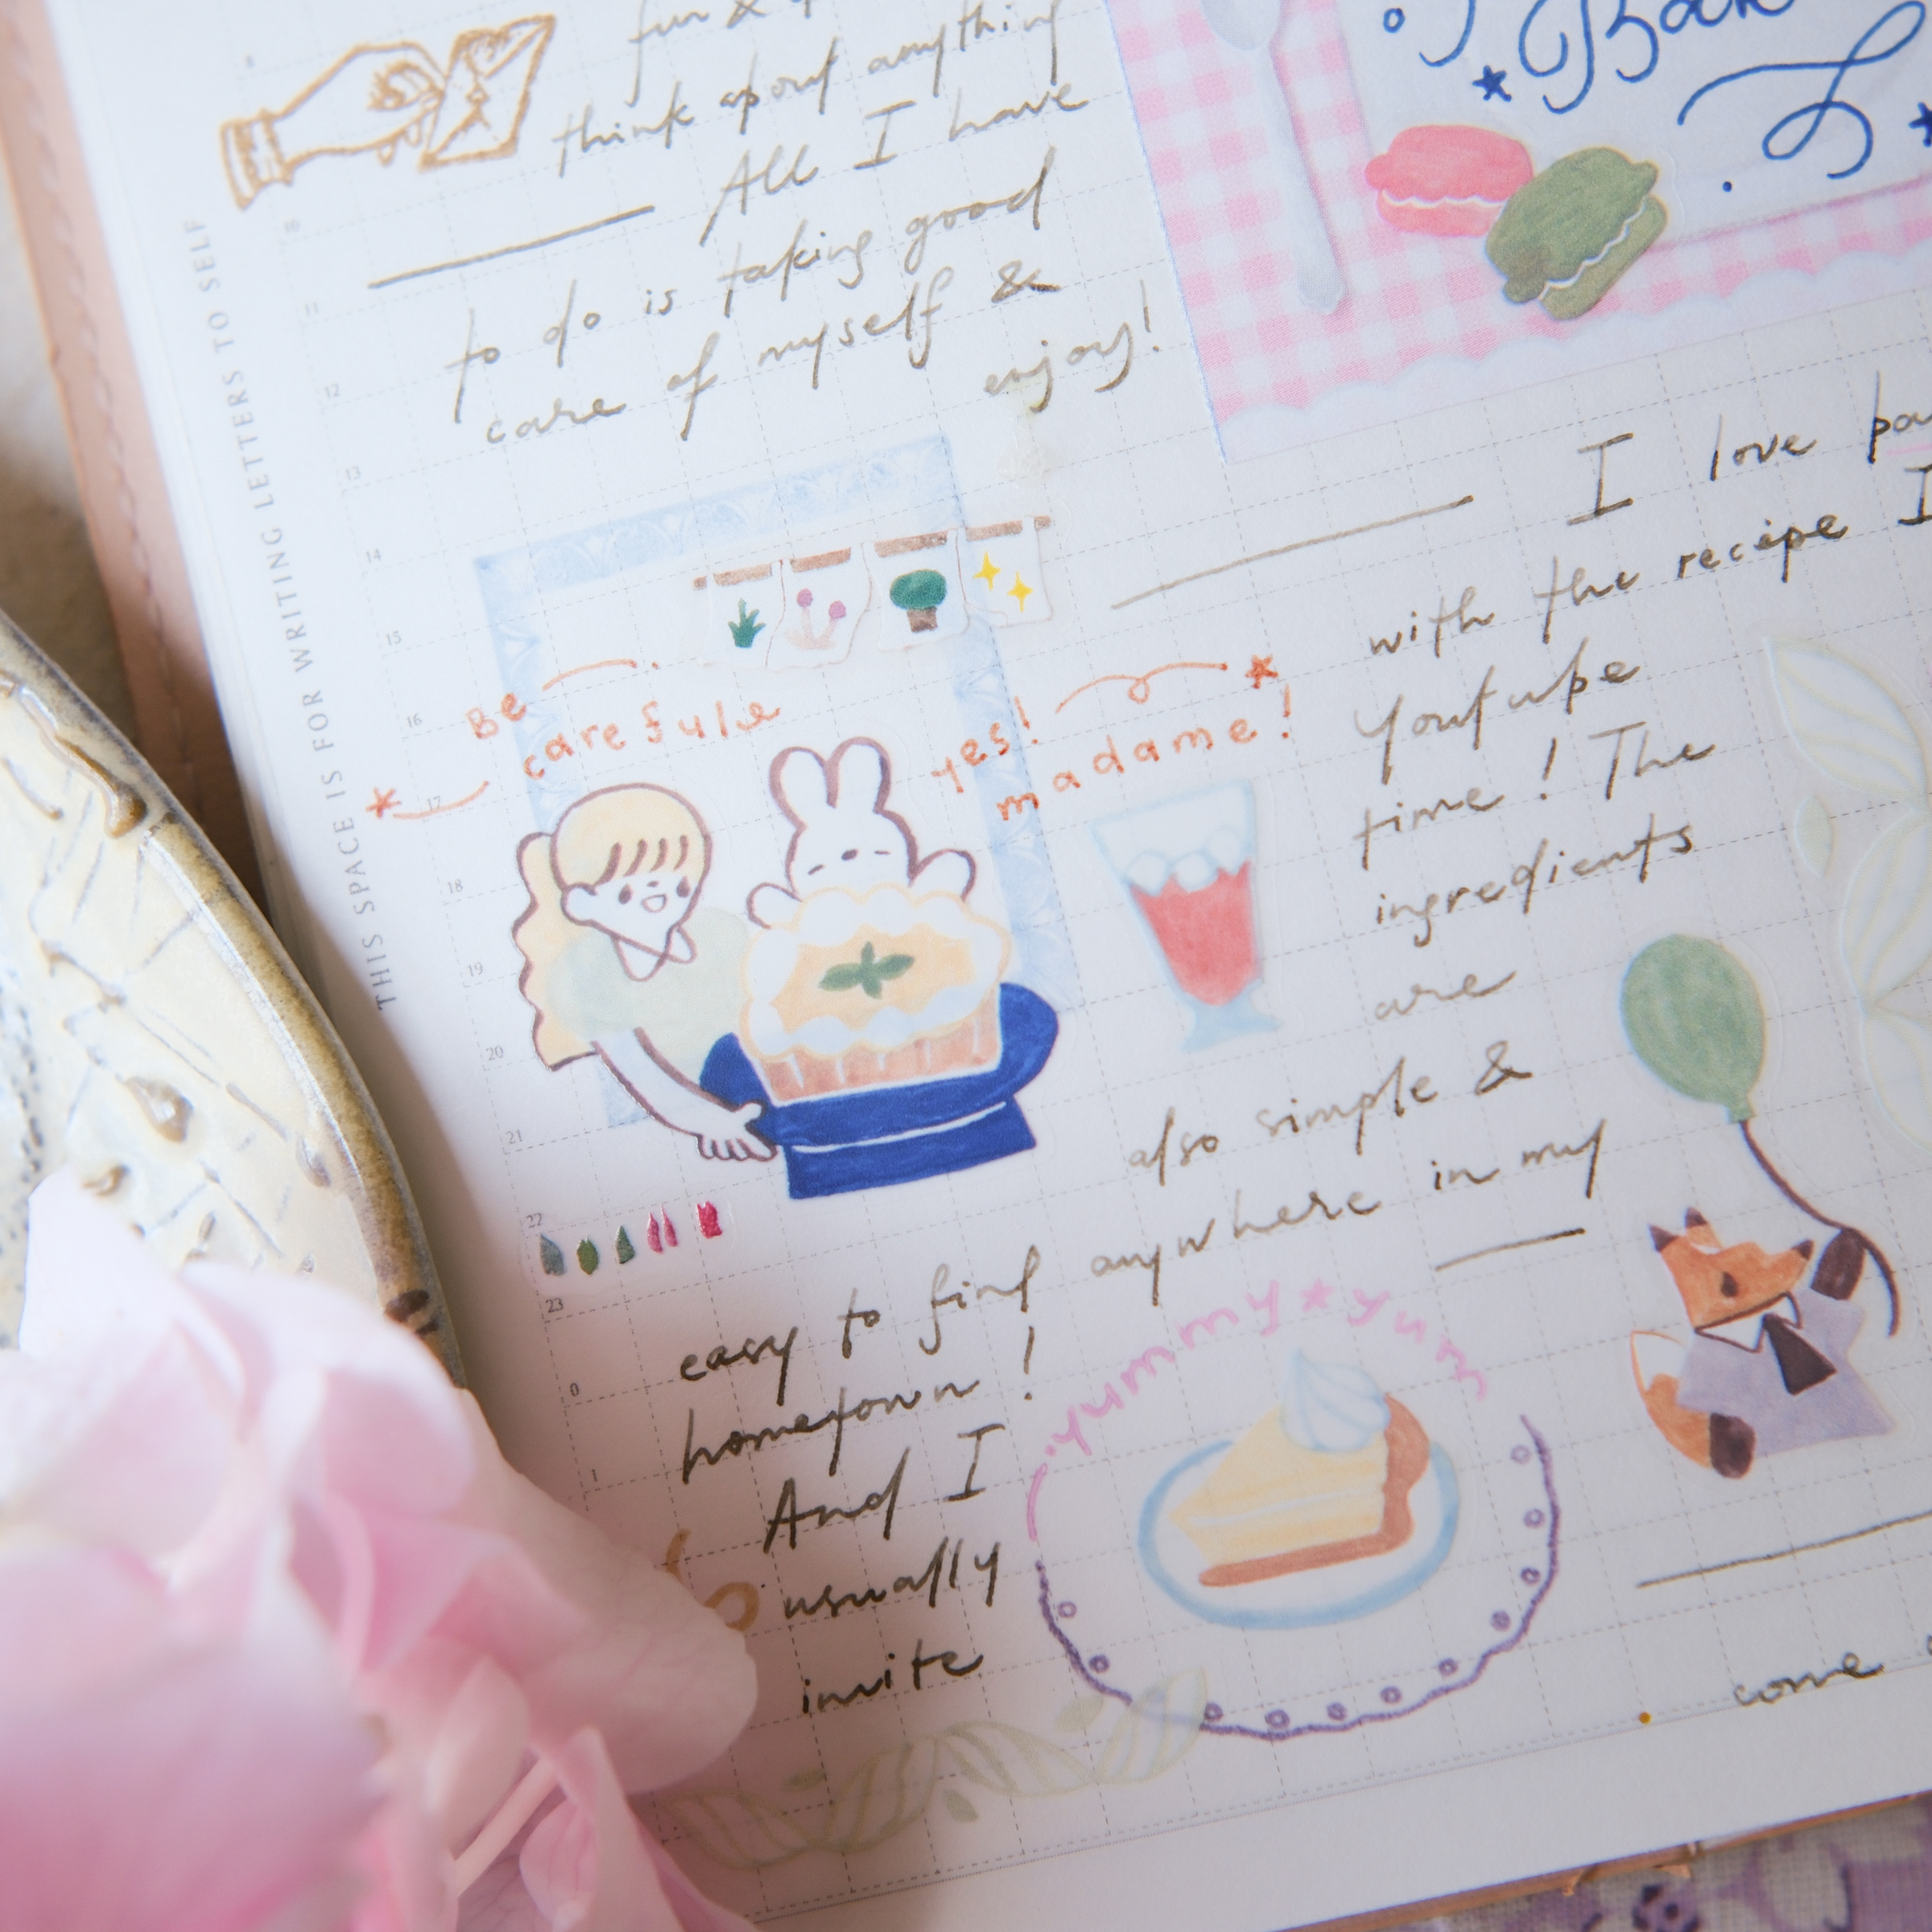 fun &
think about anything
All I have
to do is taking good
care of myself &
enjoy!
THIS SPACE IS FOR WRITING LETTERS TO SELF
10
11
12
13
14
15
16
17
18
19
20
21
22
23
0
1
Be
carefule
yes!
madame!
I love
with the recipe I
Youtube
time! The
ingredients
are
also simple &
easy to find anywhere in my
hometown!
And I
usually
invite
yummy yum
come